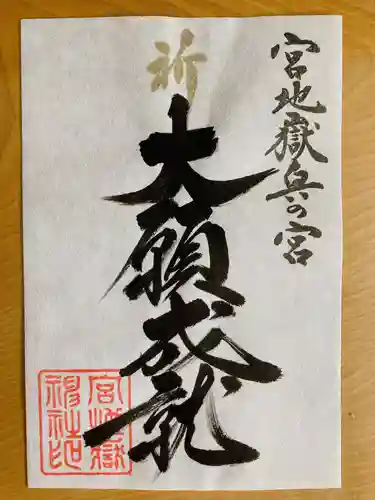 宮地嶽兵の宮
祈
大願成就
宮地嶽
神社印